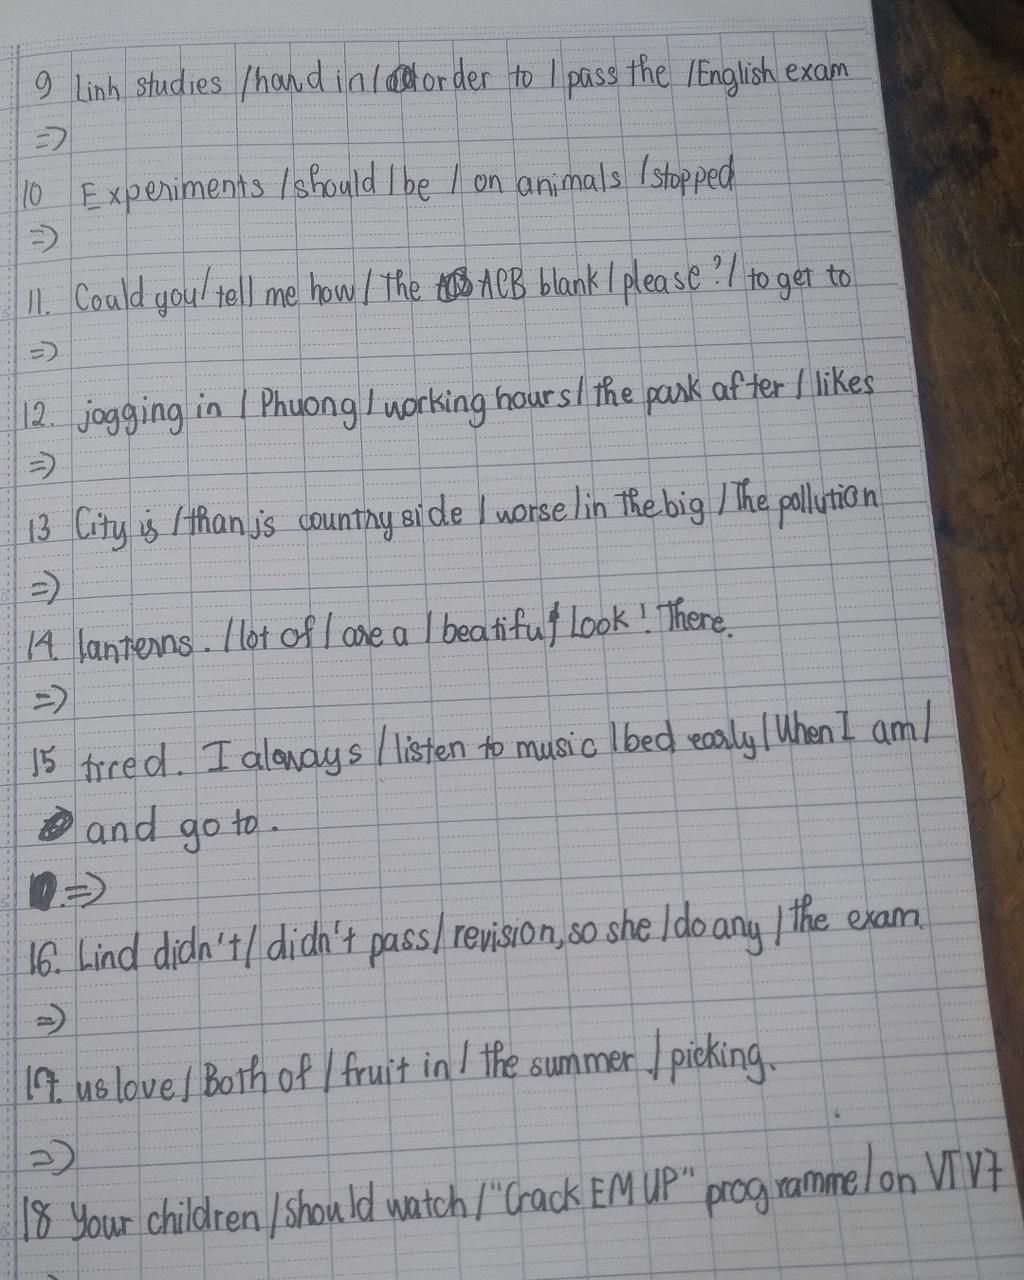 9 Linh studies / hand in / order to / pass the / English exam
=>
10 Experiments / should / be / on animals / stopped
=>
11. Could you / tell me how / the ACB blank / please? / to get to
=>
12. jogging in / Phuong / working hours / the park after / likes
=>
13 City is / than is country side / worse / in the big / The pollution
=>
14. lanterns. / lot of / are a / beatiful Look! There.
=>
15 tired. I always / listen to music / bed early / When I am /
and go to.
=>
16. Lind didn't / didn't pass / revision, so she / do any / the exam
=>
17. us love / Both of / fruit in / the summer. / picking.
=>
18 Your children / should watch / "Crack EM UP" programme / on VTV7